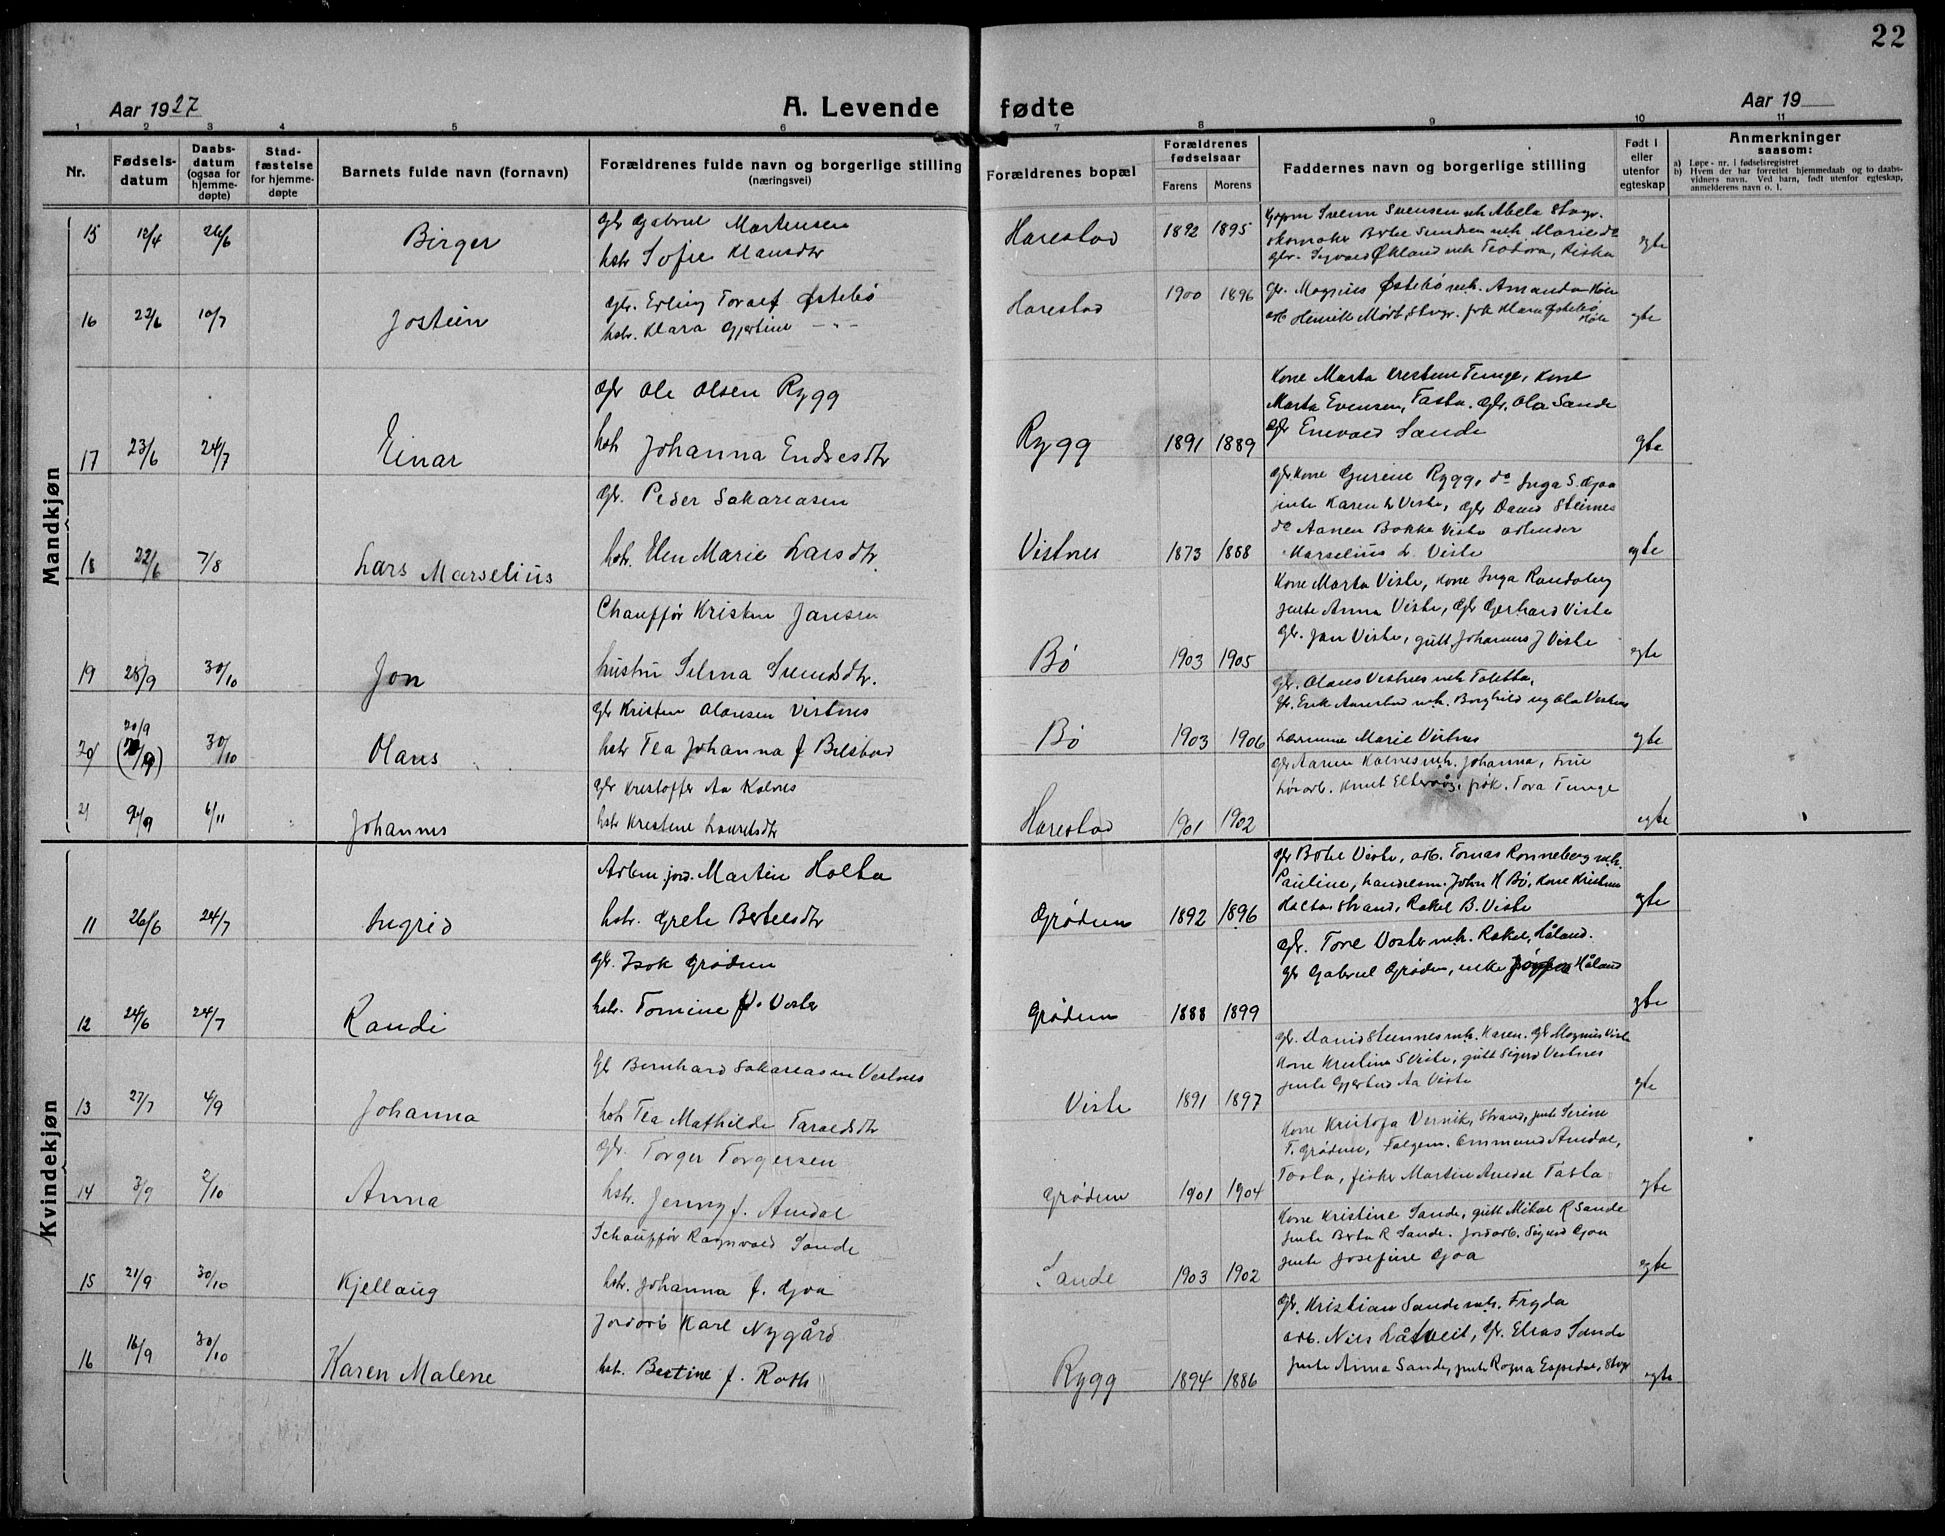 22
Aar 1927
A. Levende fødte
Aar 19
1 2 3 4 5 6 7 8 9 10 11
Nr.
Fødsels-
datum
Daabs-
datum
(ogsaa for
hjemme-
døpte)
Stad-
fæstelse
for hjemme-
døpte
Barnets fulde navn (fornavn)
Forældrenes fulde navn og borgerlige stilling
(næringsvei)
Forældrenes bopæl
Forældrenes
fødselsaar
Farens Morens
Faddernes navn og borgerlige stilling
Født i
eller
utenfor
egteskap
Anmerkninger
saasom:
a) Løpe-nr. i fødselsregistret
b) Hvem der har forrettet hjemmedaab og to daabs-
vidners navn. Ved barn, født utenfor egteskap,
anmelderens navn o. l.
Mandkjøn
15 12/4 26/6 Birger
Gbr Gabriel Mortensen
hstr Sofie Klausdtr
Harestad 1892 1895
egte
16 22/6 10/7 Jostein
Gbr. Erling Toralf Østebø
hstr. Klara Gjertine -"-
Harestad 1900 1896
Gbr. Magnus Østebø m.h. Amanda Høle
arb Henrik Mørk, Stvgr. frk Klara Østebø
Høle
egte
17 23/6 24/7 Einar
Gbr Ole Olsen Rygg
hstr Johanna Endresdtr
Rygg 1891 1889
Kone Marta Kristine Tunge, Kone
Marta Evensen, Tasta. Gbr. Ola Sande
Gbr Enevald Sande
egte
18 22/6 7/8 Lars Marselius
Gbr. Peder Sakariasen
hstr. Elen Marie Larsdtr.
Vistnes 1873 1888
Gbr kone Gurine Rygg, do Inga S. Gjoa
jente Karen L Viste, Gbr David Steinnes
do Aanen Bakke Viste
Marselius L. Viste
egte
19 28/9 30/10 Jon
Chauffør Kristen Jansen
hustru Selma Svendsdtr.
Bø 1903 1905
Kone Marta Viste, Kone Inga Randaberg
jente Anna Viste, Gbr Gerhard Viste
Gbr. Jan Viste, gutt Johannes J Viste
egte
20 20/9 30/10 Olaus
Gbr Kristen Olausen Vistnes
hstr Tea Johanna f Bilstad
Bø 1903 1906
Gbr. Olaus Vistnes m.h. Taletta,
Gbr. Erik Aarestad m.h. Borghild og Ola Vistnes
Lærerinne Marie Vistnes
egte
21 9/9 6/11 Johannes
Gbr Kristoffer Aa Kalnes
hstr Kristine Lauritsdtr
Harestad 1901 1902
Gbr Aanen Kalnes m.h. Johanna,
Løsarb. Knut frøk. Tora Tunge
egte
Kvindekjøn
11 26/6 24/7 Ingrid
Martin Holta
hstr. Grete Bertelsdtr
Grødem 1892 1896
Gbr Bertel Viste, arb. Tomas Ronneberg m.h.
Pauline, handelsm. John H Bø, Kone Kristine
Holta Strand, Rakel B. Viste
egte
12 24/6 24/7 Randi
Gbr. Isak Grødem
hstr. Tomine f. Voster
Grødem 1888 1899
Gbr. Tore Voster m.h. Rakel, Håland.
Gbr Gabriel Grødem, enke Håland
egte
13 27/7 4/9 Johanna
Gbr Bernhard Sakariasen Vestnes
hstr Tea Mathilde Taraldsdtr
Viste 1891 1897
Gbr. David Steinnes m.h. Karen. Gbr Magnus Viste
Kone Kristine S Viste, gutt Sigurd Vestnes
jente Gjertrud Aa Viste
egte
14 3/9 2/10 Anna
Gbr. Torger Torgersen
hstr. Jenny f. Amdal
Grødem 1901 1904
Kone Kristofa Vervik, Strand, jente Serine
T. Grødem, Falgem. Ommund Amdal,
Tasta, fisker Martin Amdal Tasta
egte
15 21/9 30/10 Kjellaug
Schauffør Ragnvald Sande
hstr. Johanna f. Gjoa
Sande 1903 1902
Kone Kristine Sande, gutt Mikal R Sande
jente Berta R Sande. Jordarb. Sigurd Gjoa
jente Josefine Gjoa
egte
16 16/9 30/10 Karen Malene
Jordarb Karl Nygård
hstr. Bertine f. Roth
Rygg 1894 1886
Gbr. Kristian Sande m.h. Fryda
arb. Nils Låtveit, Gbr. Elias Sande
jente Anna Sande, jente Ragna Espedal, Stvgr
egte